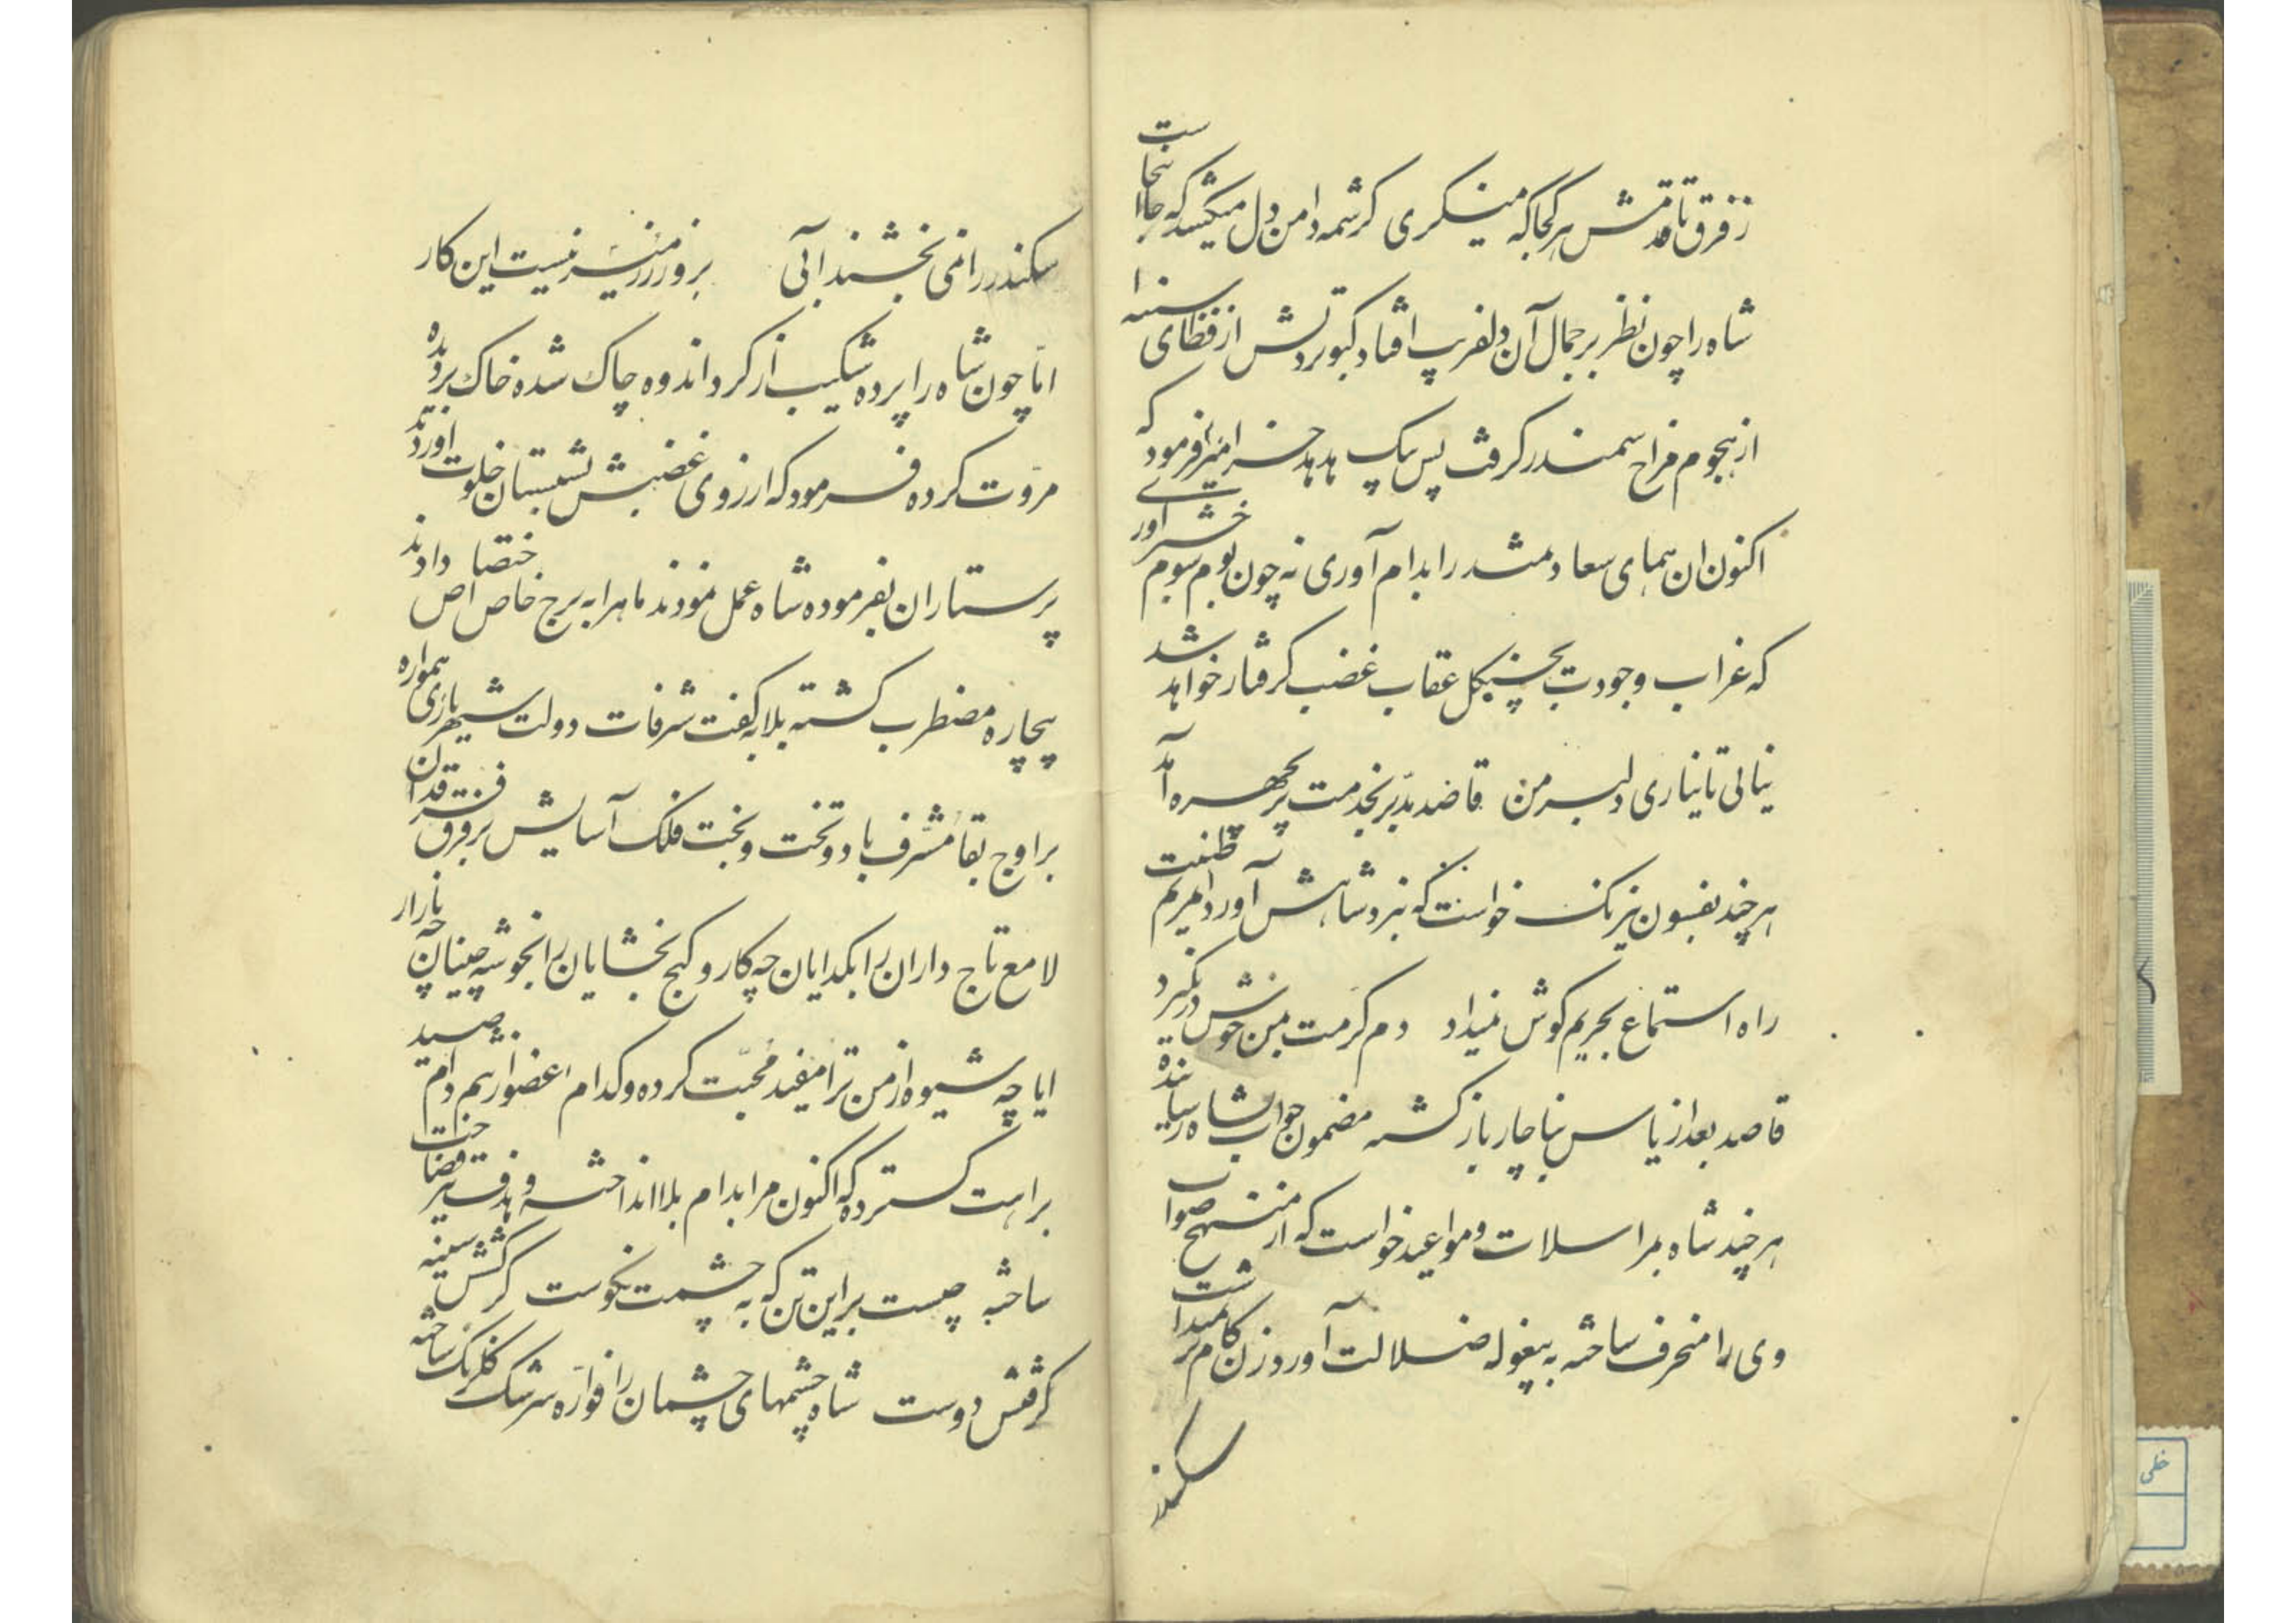 ز فرق تا قدمش هر کجا که مینکری کرشمه دامن دل میکشد که جا اینجاست
شاه را چون نظر بر جمال آن دلفریب افتاد کبوتر دلش از قضای سینه
از هجوم مزاج سمندر کرفت پس پیک هدهد خبر امیرا فرمود که
اکنون ان همای سعادتمند را بدام آوری نه چون بوم شوم خبر آوری
که غراب وجودت بچنکل عقاب غضب کرفتار خواهد شد
نیائی تا نیاری دلبر من قاصد مدبر بخدمت پریچهره آمد
هر چند بفسون نیرنک خواست که بنزد شاهش آورد امریم طینت
راه استماع بحریم کوش نمیداد دم کرمت بمن خوش در نکیرد
قاصد بعد از یاس بناچار باز کشته مضمون جواب بشاه رسانیده
هر چند شاه بمراسلات و مواعید خواست که از منهج صواب
وی را منحرف ساخته به بیغوله ضلالت آورد زن کام بر نمیداشت
سکندر
سکندر را نمی بخشند آبی بزور و زر میسر نیست این کار
اما چون شاه را پرده شکیب از کرد اندوه چاک شده خاک بر دیده
مروت کرده فرمود که از روی غضبش بشبستان خلوت اورند
پرستاران بفرموده شاه عمل نمودند ماهرا به برج خاص اختصاص دادند
بیچاره مضطرب کشته بلابه کفت شرفات دولت شهریاری همواره
بر اوج بقا مشرف باد و تخت و بخت فلک آسایش بر فرق فرقدان
لامع تاج داران را بکدایان چه کار و کنج بخشایان را بخوشه چینان چه بازار
ایا چه شیوه از من ترا مقید محبت کرده و کدام اعضوا زهم دام صید
براهت کسترده که اکنون مرا بدام بلا انداخته و هدف تیر قضات
ساخته چیست بر این تن که به چشمت نکوست کر کشش سینه
کر کفش دوست شاه چشمهای چشمان را فواره سرشک کلرنک ساخته